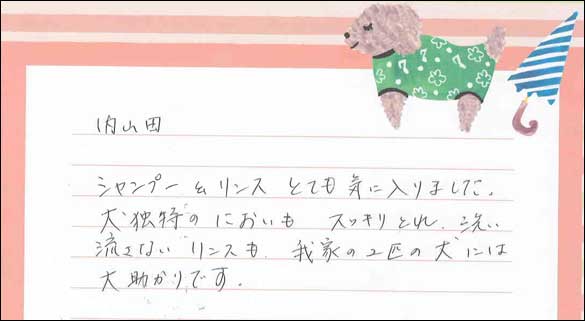 内山田
シャンプー&リンス とても気に入りました。
犬独特のにおいも スッキリとれ、洗い
流さない リンスも、我家の2匹の犬には
大助かりです。